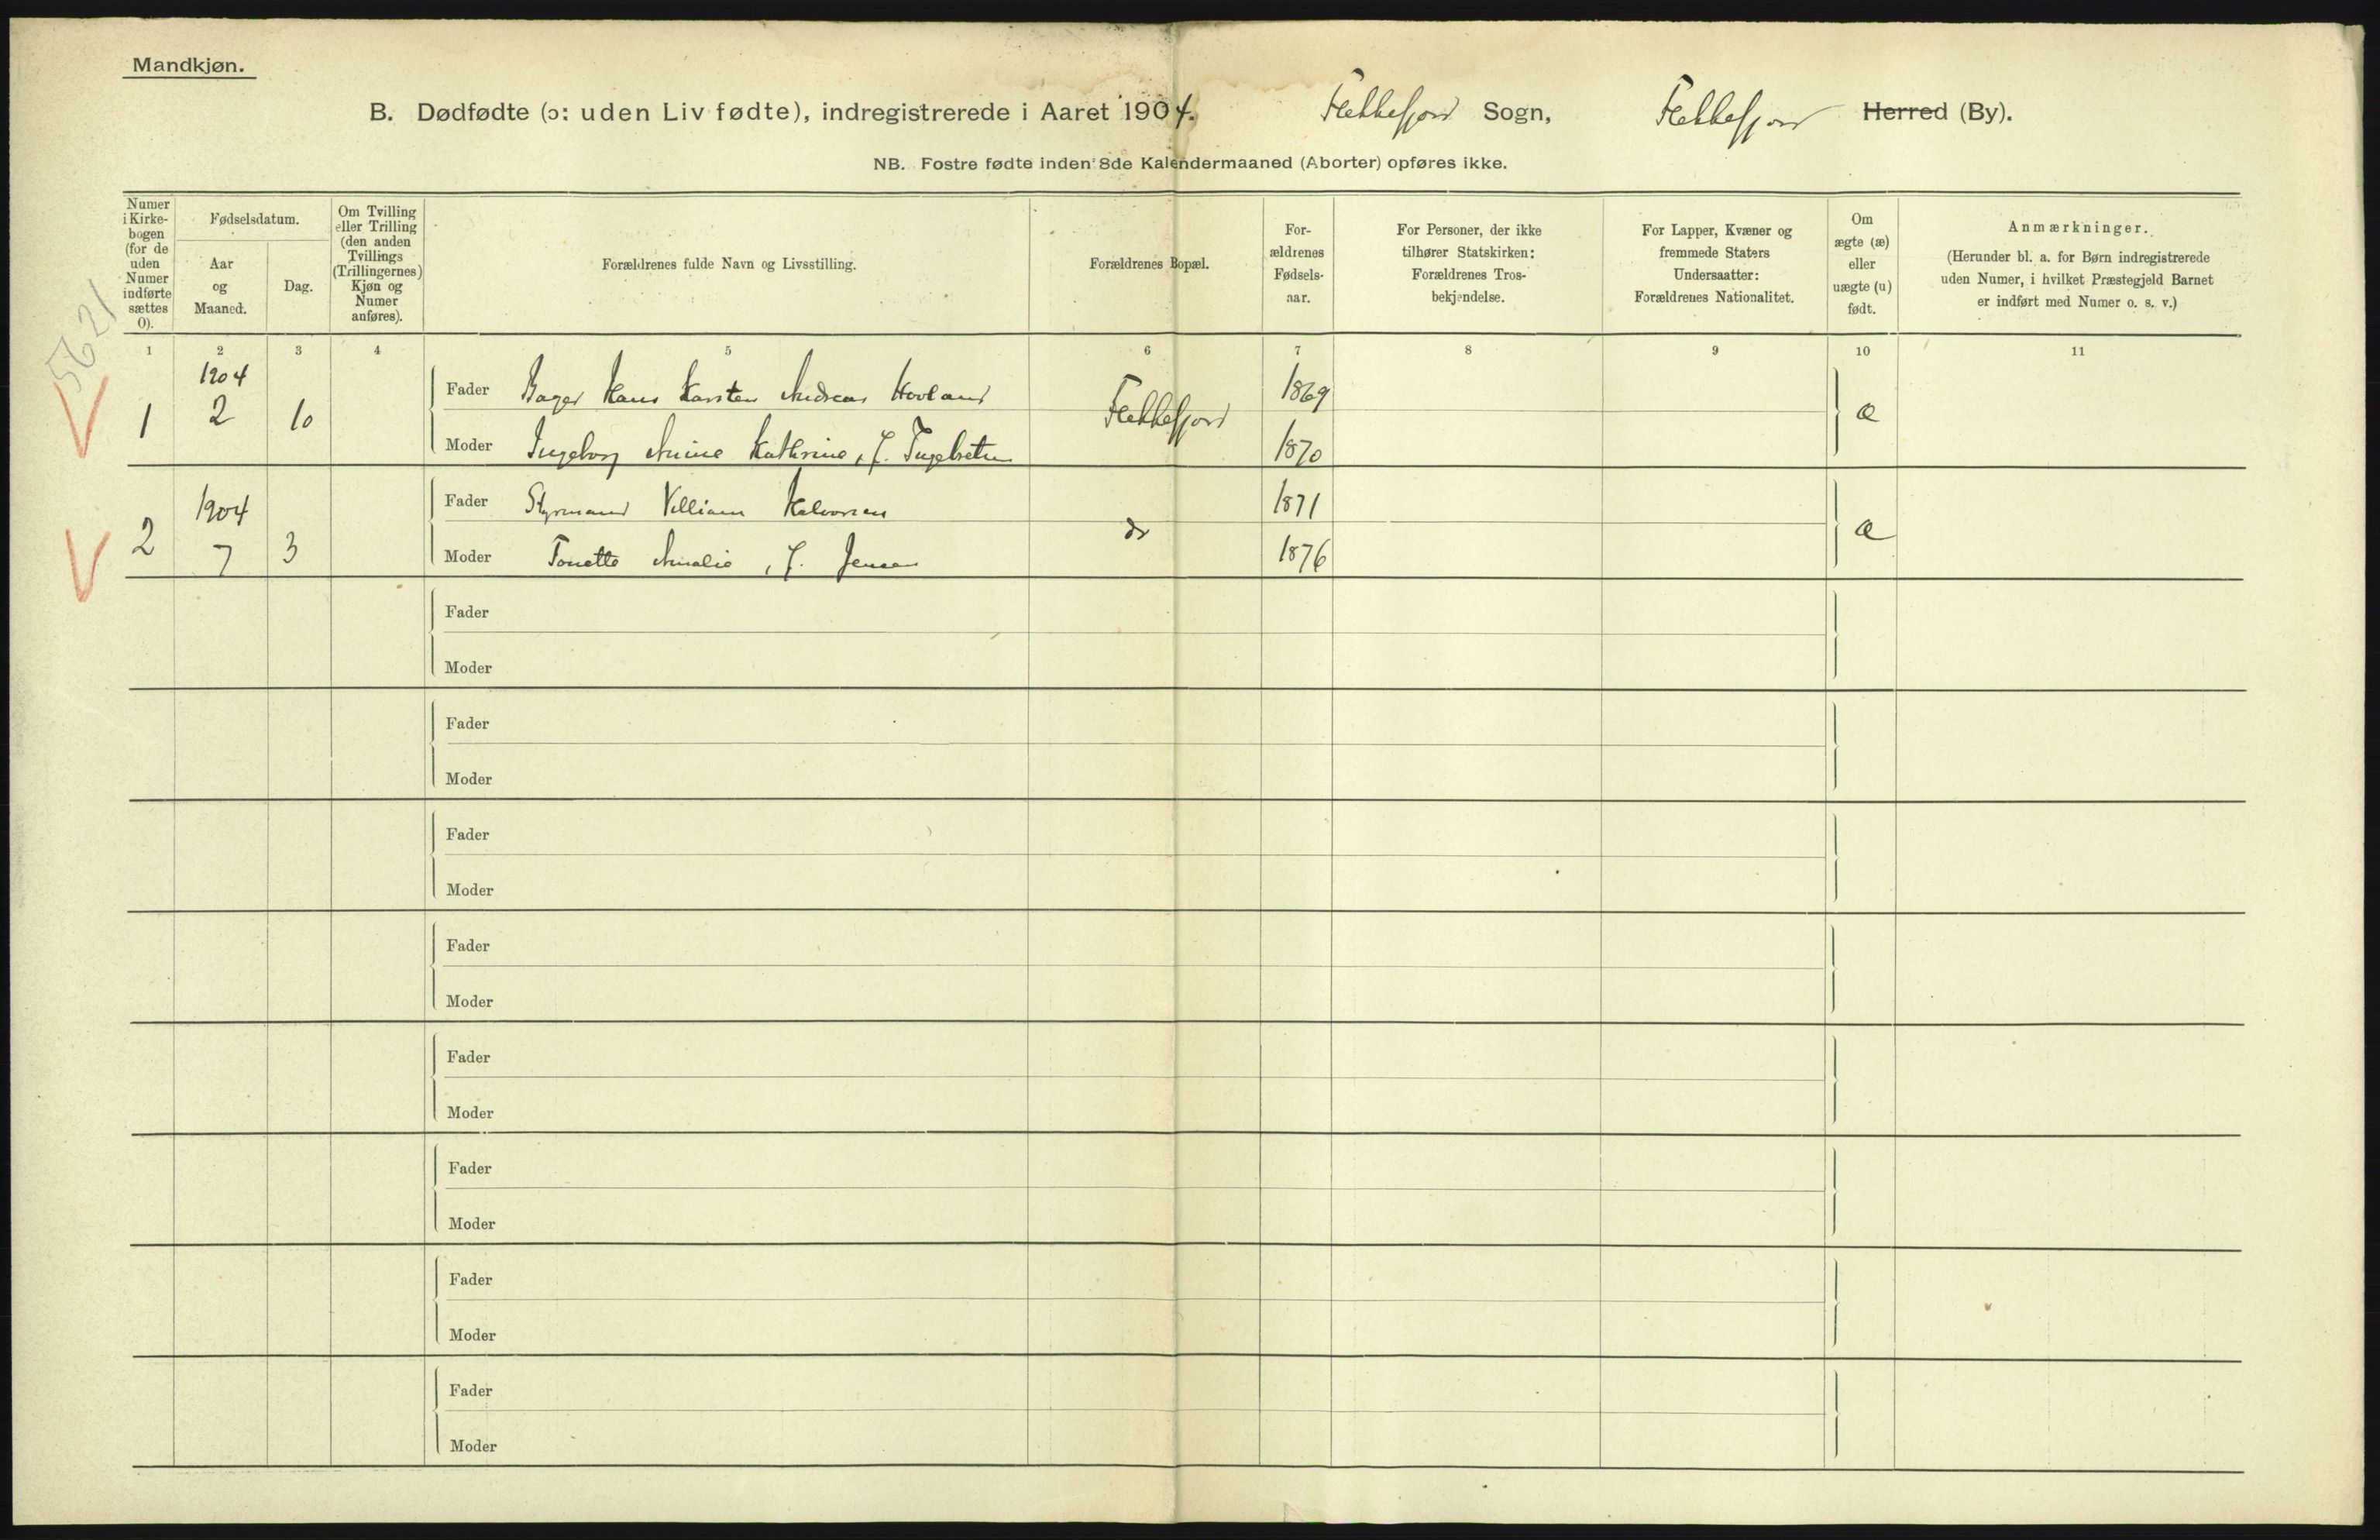 Mandkjøn.
B. Dødfødte (ɔ: uden Liv fødte), indregistrerede i Aaret 1904. Flekkefjord Sogn, Flekkefjord Herred (By).
NB. Fostre fødte inden 8de Kalendermaaned (Aborter) opføres ikke.
Numer i Kirkebogen (for de uden Numer indførte sættes 0).
Fødselsdatum.
Aar og Maaned.
Dag.
Om Tvilling eller Trilling (den anden Tvillings (Trillingernes) Kjøn og Numer anføres).
Forældrenes fulde Navn og Livsstilling.
Forældrenes Bopæl.
For-ældrenes Fødsels-aar.
For Personer, der ikke tilhører Statskirken: Forældrenes Tros-bekjendelse.
For Lapper, Kvæner og fremmede Staters Undersaatter: Forældrenes Nationalitet.
Om ægte (æ) eller uægte (u) født.
Anmærkninger.
(Herunder bl. a. for Børn indregistrerede uden Numer, i hvilket Præstegjeld Barnet er indført med Numer o. s. v.)
1 2 3 4 5 6 7 8 9 10 11
5621
1 1904 2 10
Fader Bager Hans Karsten Andreas Hovland Flekkefjord 1869 æ
Moder Ingeborg Anine Kathrine, f. Ingebretsen 1870
2 1904 7 3
Fader Styrmand Villiam Halvorsen do 1871 æ
Moder Tonette Amalie, f. Jensen 1876
Fader
Moder
Fader
Moder
Fader
Moder
Fader
Moder
Fader
Moder
Fader
Moder
Fader
Moder
Fader
Moder